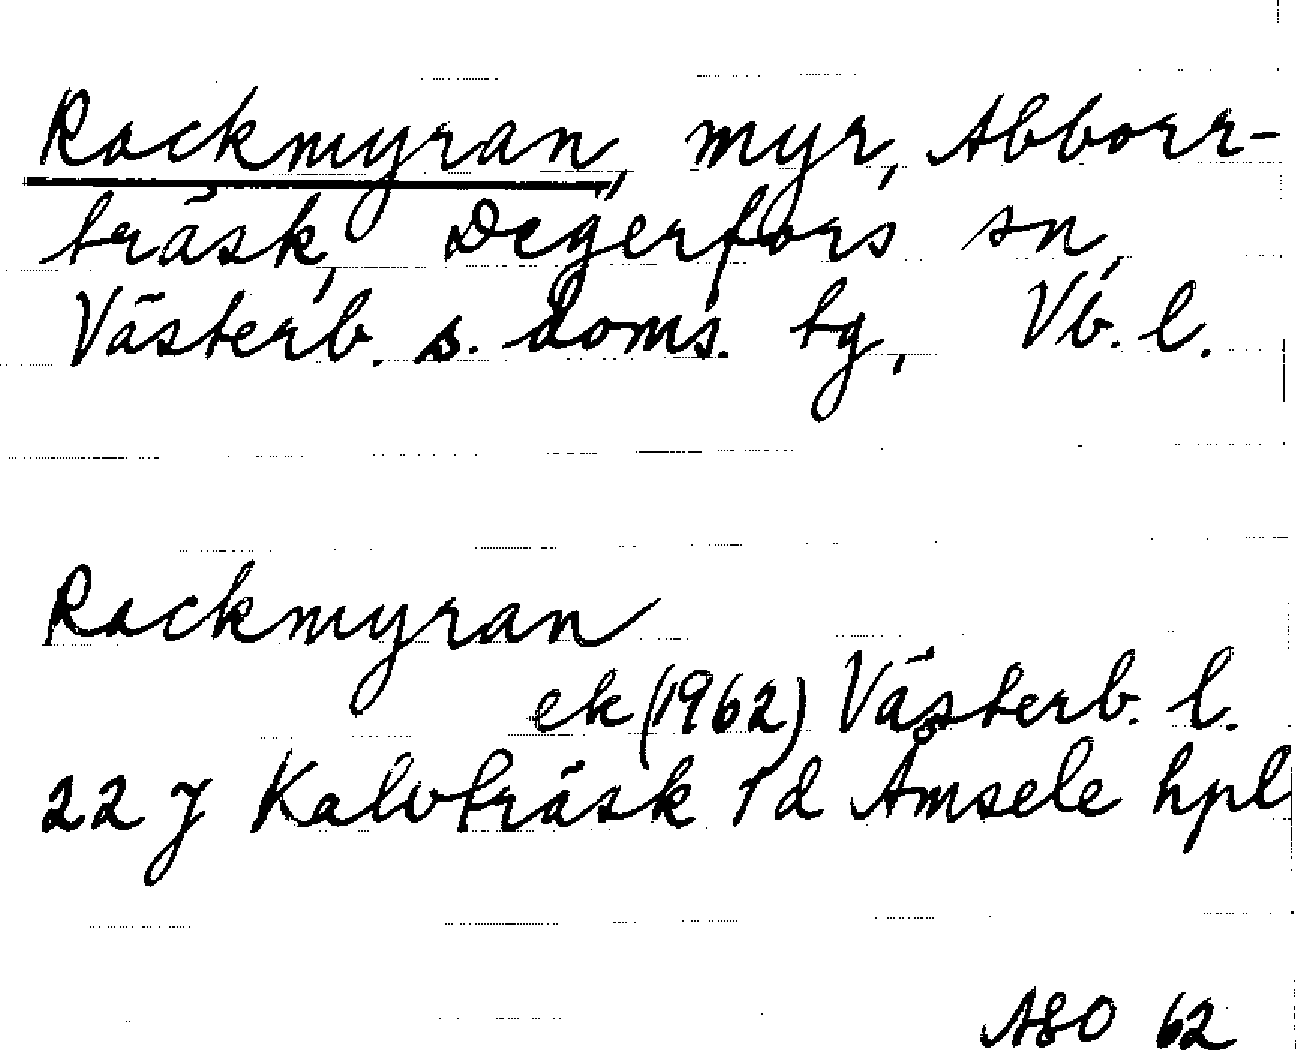 Rackmyran, myr, Abborr-
träsk, Degerfors sn,
Västerb. s. doms. tg, Vb. l.
Rackmyran
ek (1962) Västerb. l.
22 J Kalvträsk 1 d Åmsele hpl
ASO 62